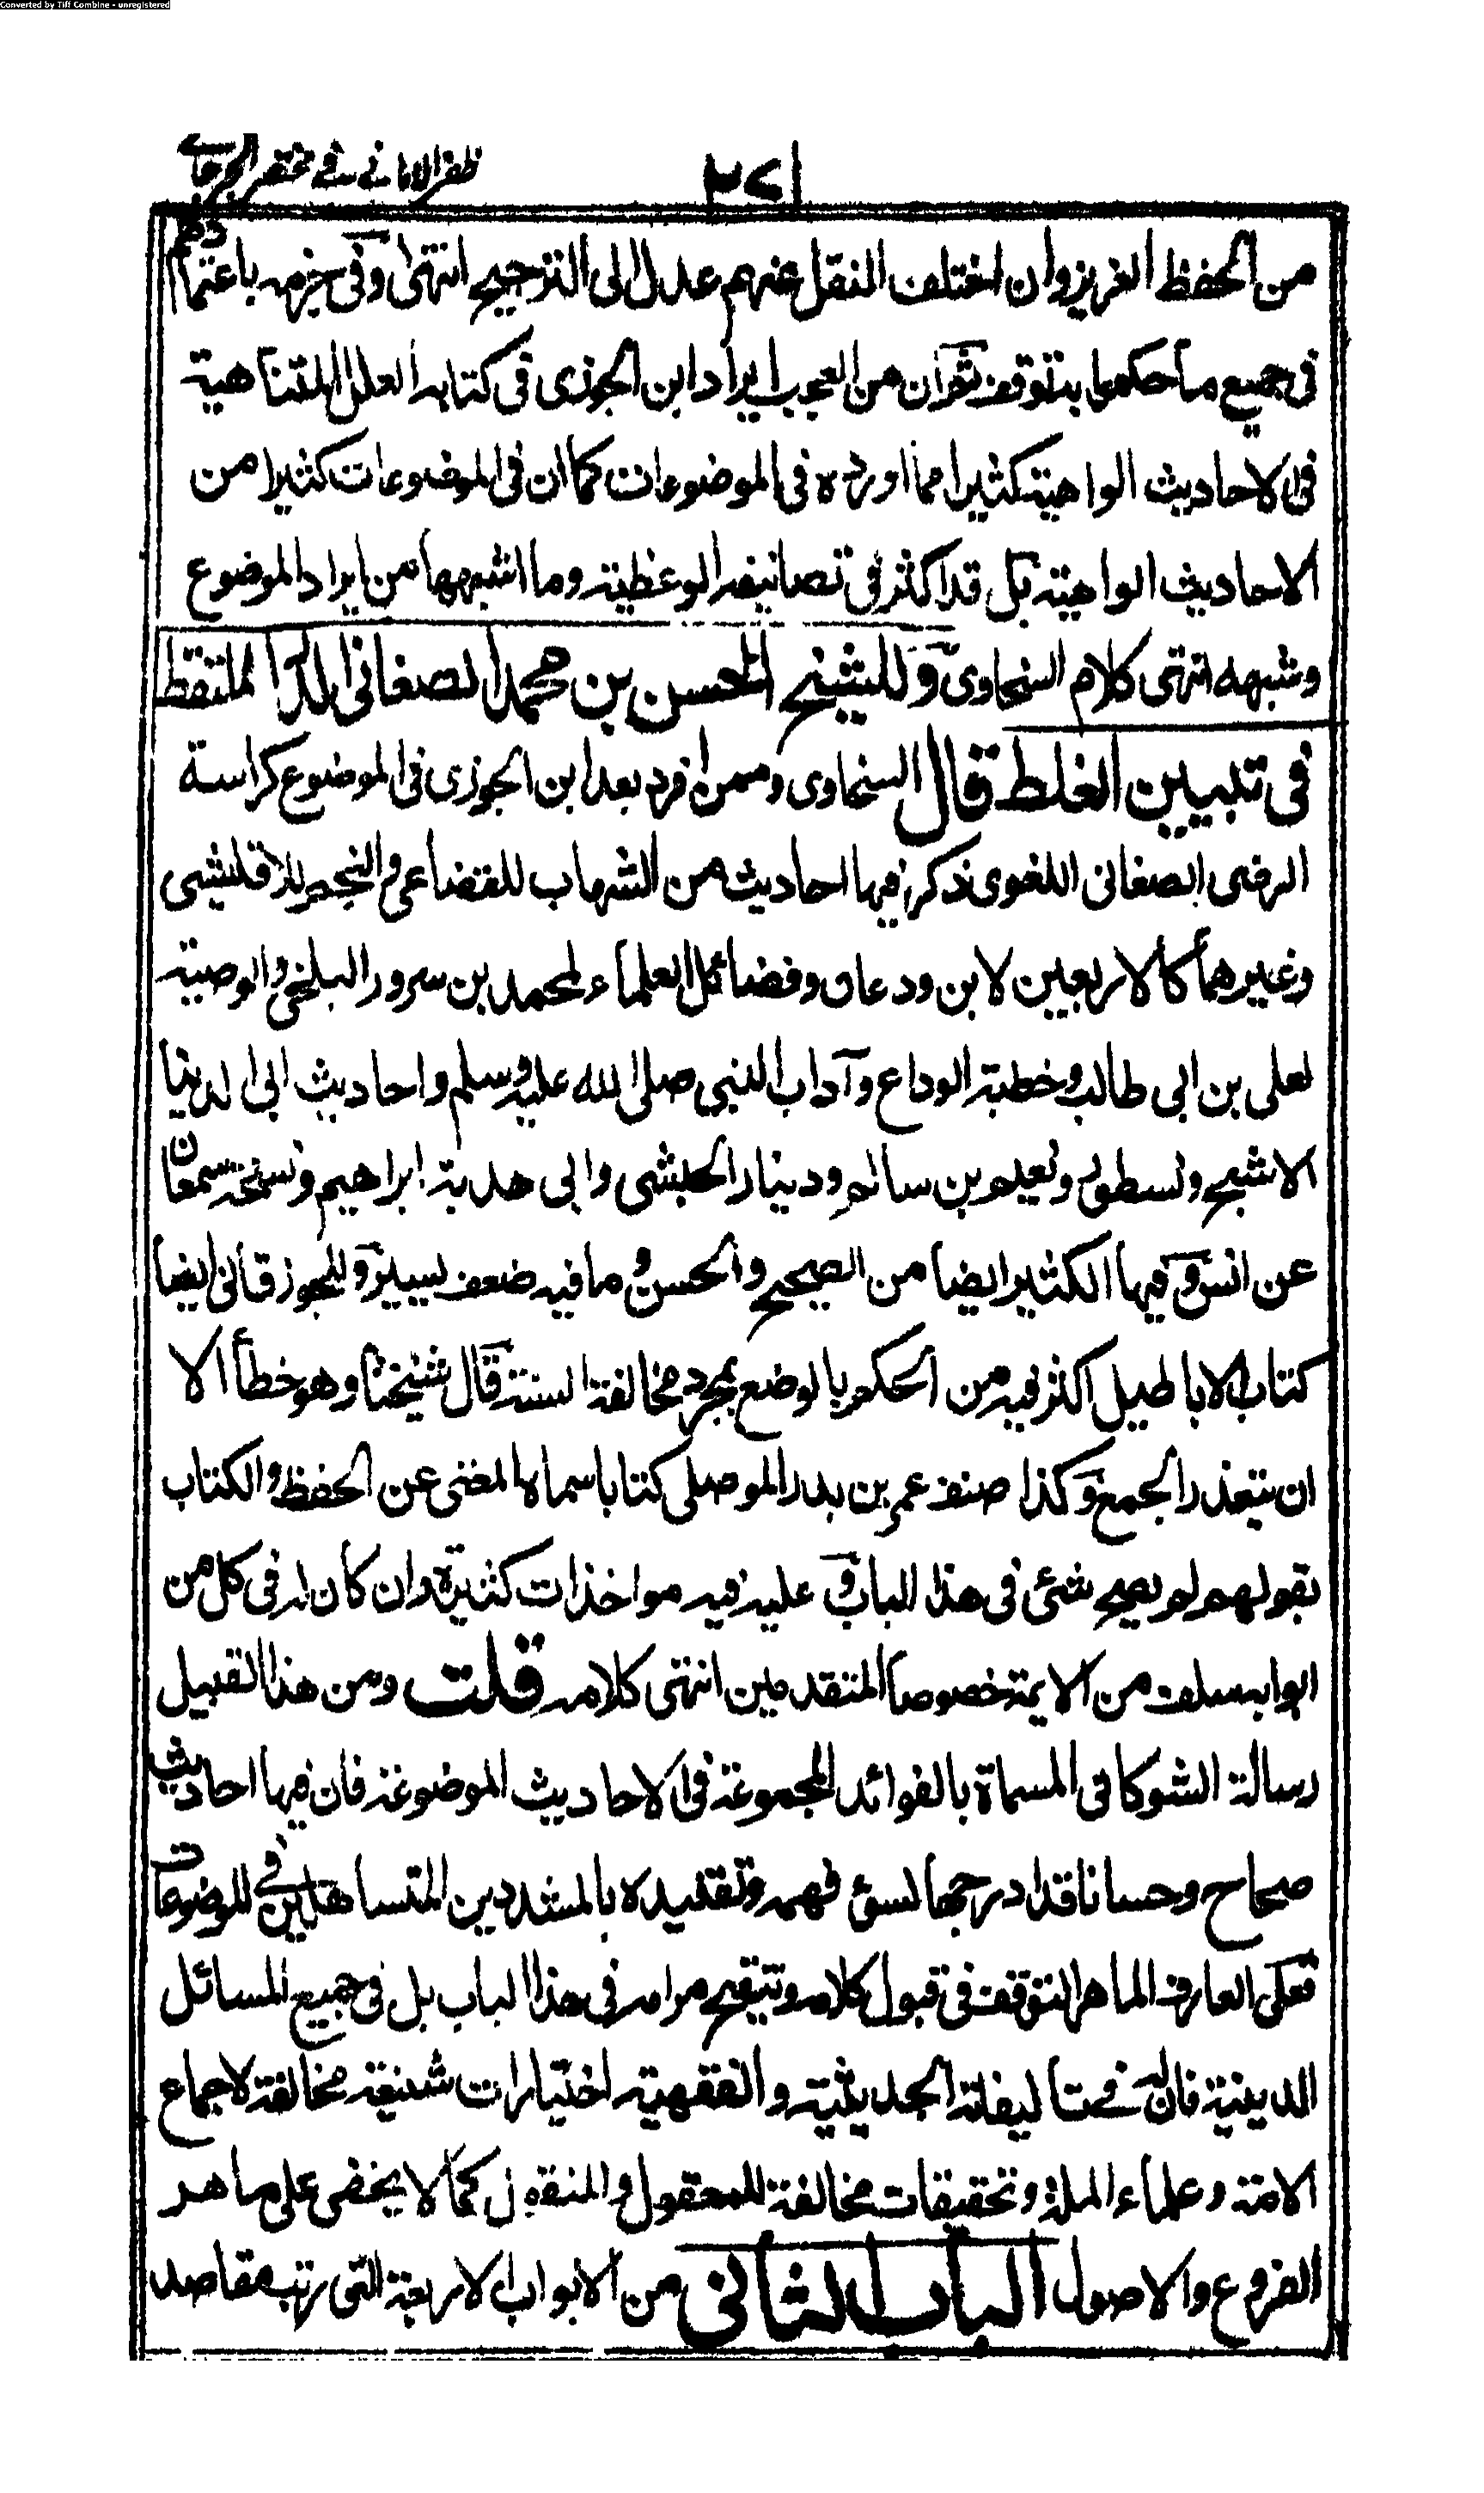 Converted by Tiff Combine - unregistered
ظفر الامانى فى مختصر الجرجانى
٢٧١
من الحفظ الغزير وان اختلف النقل عنهم عدل الى الترجيح انتهى وفى جزمه باعتمادهم
فى جميع ما حكموا به توقف ثم ان من العجب ايراد ابن الجوزى فى كتابه العلل المتناهية
فى الاحاديث الواهية كثيرا مما اورده فى الموضوعات كما ان فى الموضوعات كثيرا من
الاحاديث الواهية بل قد اكثر فى تصانيفه الوعظية وما اشبهها من ايراد الموضوع
وشبهه انتهى كلام السخاوى وللشيخ الحسن بن محمد الصغانى الدر الملتقط
فى تبيين الغلط قال السخاوى وممن افرد بعد ابن الجوزى فى الموضوع كراسة
الرضى الصغانى اللغوى ذكر فيها احاديث من الشهاب للقضاعى والنجم للاقليشى
وغيرهما كالاربعين لابن ودعان وفضائل العلماء لمحمد بن سرور البلخى والوصية
لعلى بن ابى طالب وخطبة الوداع وآداب النبى صلى الله عليه وسلم واحاديث ابى الدنيا
الاشج ونسطور ونعيم بن سالم ودينار الحبشى وابى هدبة ابراهيم ونسخة سمعان
عن انس وفيها الكثير ايضا من الصحيح والحسن وما فيه ضعف يسير وللجوزقانى ايضا
كتاب الاباطيل اكثر فيه من الحكم بالوضع بمجرد مخالفة السنة قال شيخنا وهو خطأ الا
ان يتعذر الجمع وكذا صنف عمر بن بدر الموصلى كتابا سماه المغنى عن الحفظ والكتاب
بقولهم لم يصح شئ فى هذا الباب وعليه فيه مواخذات كثيرة وان كان له فى كل من
ابوابه سلف من الايمة خصوصا المتقدمين انتهى كلامه قلت ومن هذا القبيل
رسالة الشوكانى المسماة بالفوائد المجموعة فى الاحاديث الموضوعة فان فيها احاديث
صحاح وحسانا قد ادرجها لسوء فهمه وتقليده بالمشددين المتساهلين فى الموضوعات
فعلى العارف الماهر التوقف فى قبول كلامه وتنقيح مرامه فى هذا الباب بل فى جميع المسائل
الدينية فان له فى تاليفاته الحديثية والفقهية اختيارات شنيعة مخالفة لاجماع
الامة وعلماء الملة وتحقيقات مخالفة للمعقول والمنقول كما لا يخفى على ماهر
الفروع والاصول الباب الثانى من الابواب الاربعة التى رتب مقاصد